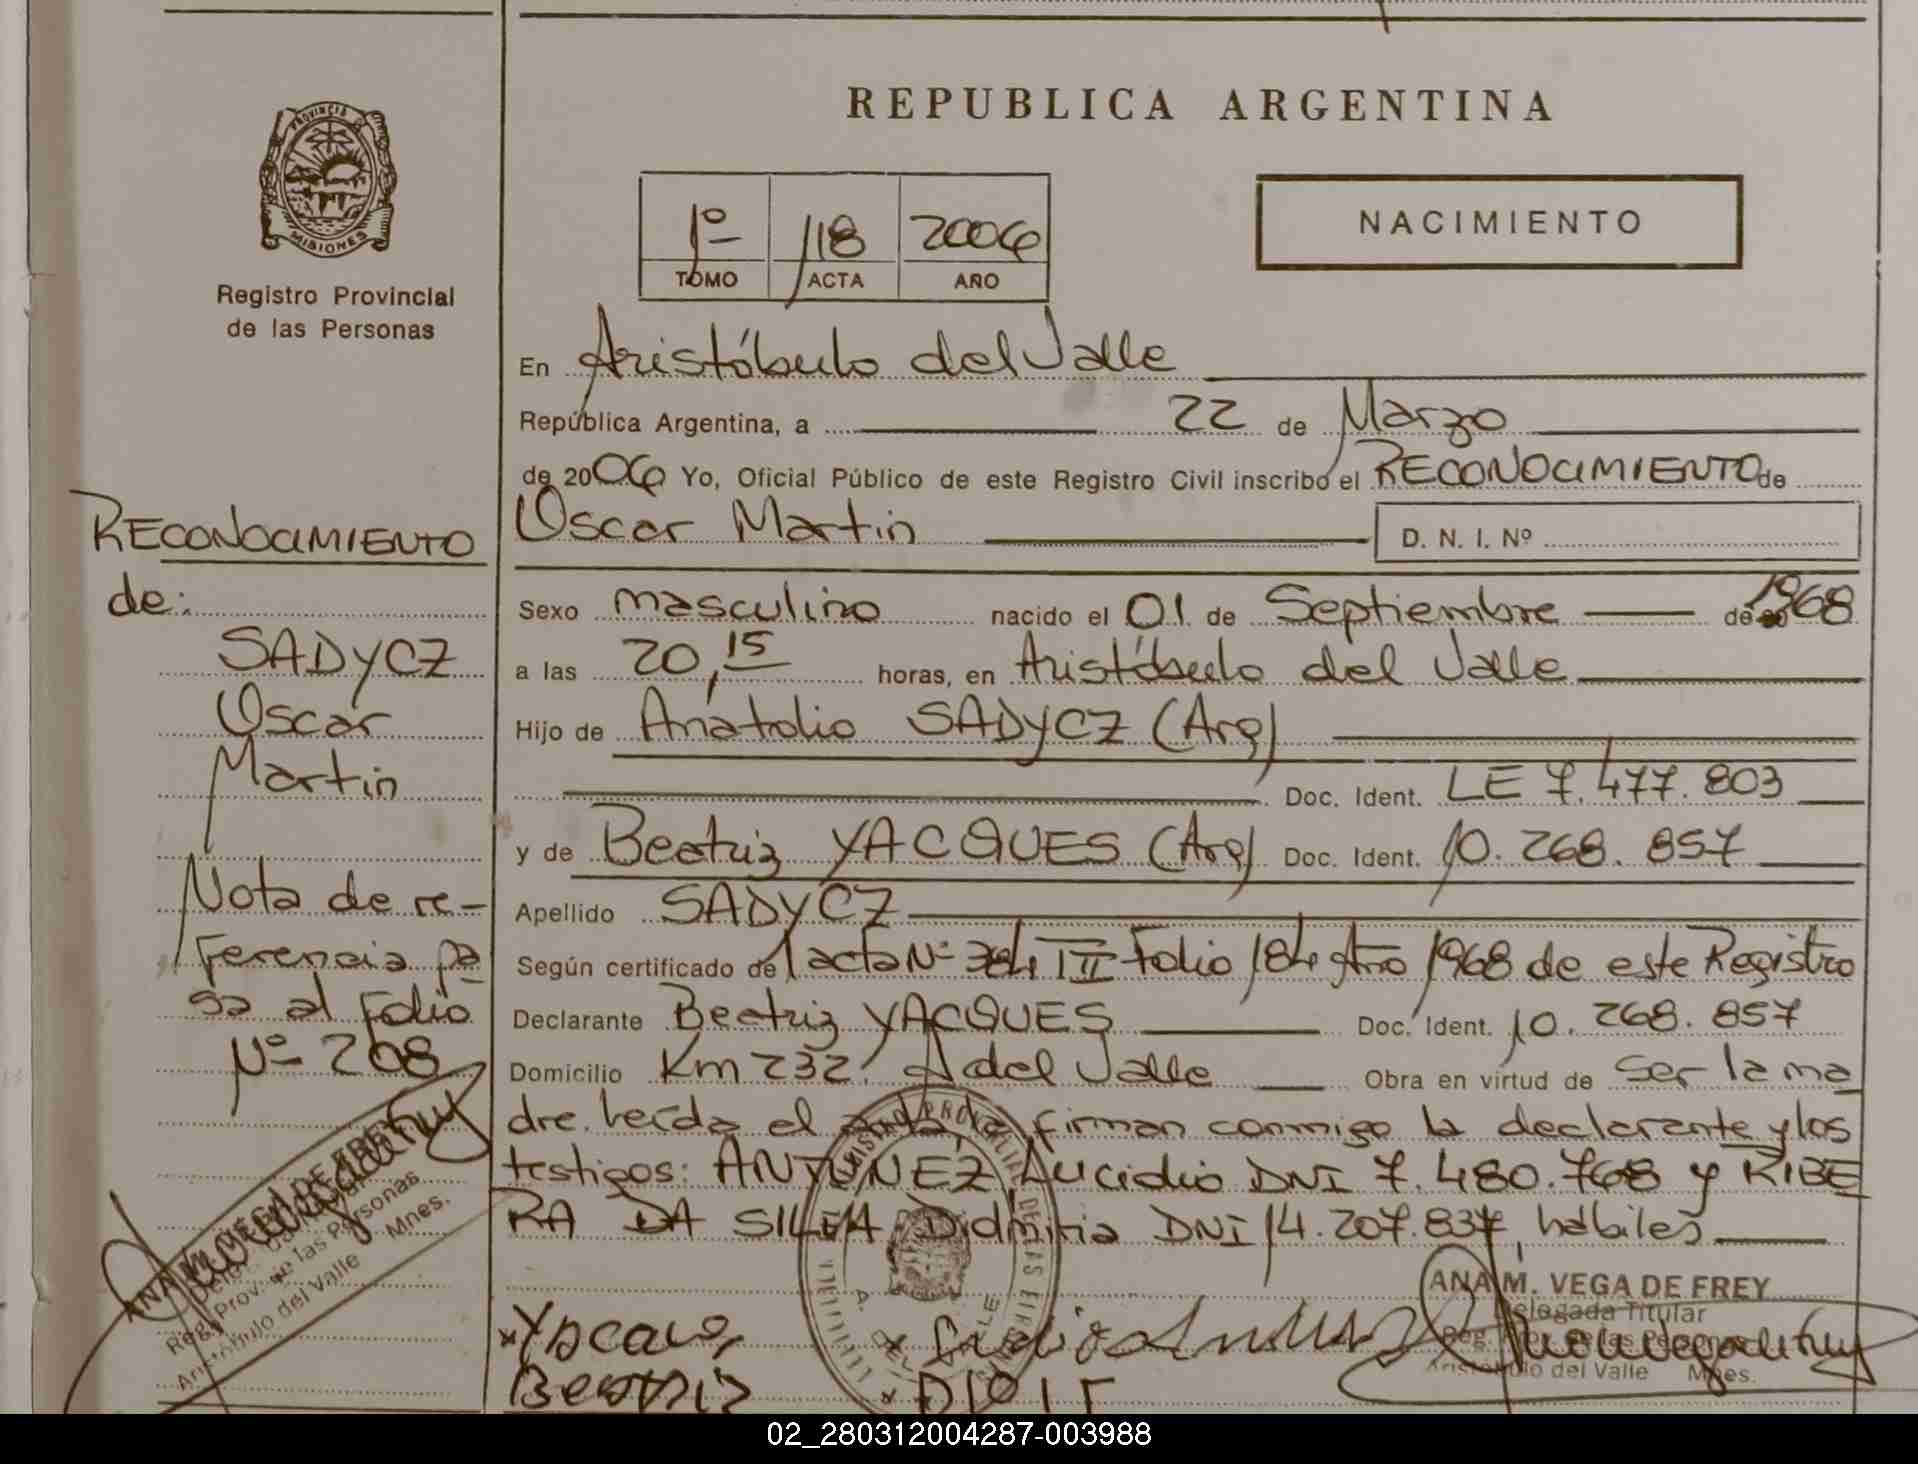 PROVINCIA DE
MISIONES
Registro Provincial
de las Personas
RECONOCIMIENTO
de:
SADYCZ
Oscar
Martin
Nota de re-
ferencia pa
sa al Folio
Nº 208
ANA M. VEGA DE FREY
Reg. Prov. de las Personas
Aristóbulo del Valle Mnes.
REPUBLICA ARGENTINA
1º 118 2006
TOMO ACTA AÑO
NACIMIENTO
En Aristóbulo del Valle
República Argentina, a 22 de Marzo
de 2006 Yo, Oficial Público de este Registro Civil inscribo el RECONOCIMIENTO de
Oscar Martin D. N. I. Nº
Sexo masculino nacido el 01 de Septiembre de 1968
a las 20,15 horas, en Aristóbulo del Valle
Hijo de Anatolio SADYCZ (Arg)
Doc. Ident. LE 7.477.803
y de Beatriz YACQUES (Arg) Doc. Ident. 10.268.857
Apellido SADYCZ
Según certificado de acta Nº 384 Folio 184 Año 1968 de este Registro
Declarante Beatriz YACQUES Doc. Ident. 10.268.857
Domicilio Km 232, A del Valle Obra en virtud de ser la ma
dre. Leída el acta, firman conmigo la declarante y los
testigos: ANTUNEZ, Lucidio DNI 7.480.768 y RIBE
RA DA SILVA DNI 14.207.837, hábiles
ANA M. VEGA DE FREY
Delegada Titular
Reg. Prov. de las Personas
Aristóbulo del Valle Mnes.
Beatriz
02_280312004287-003988